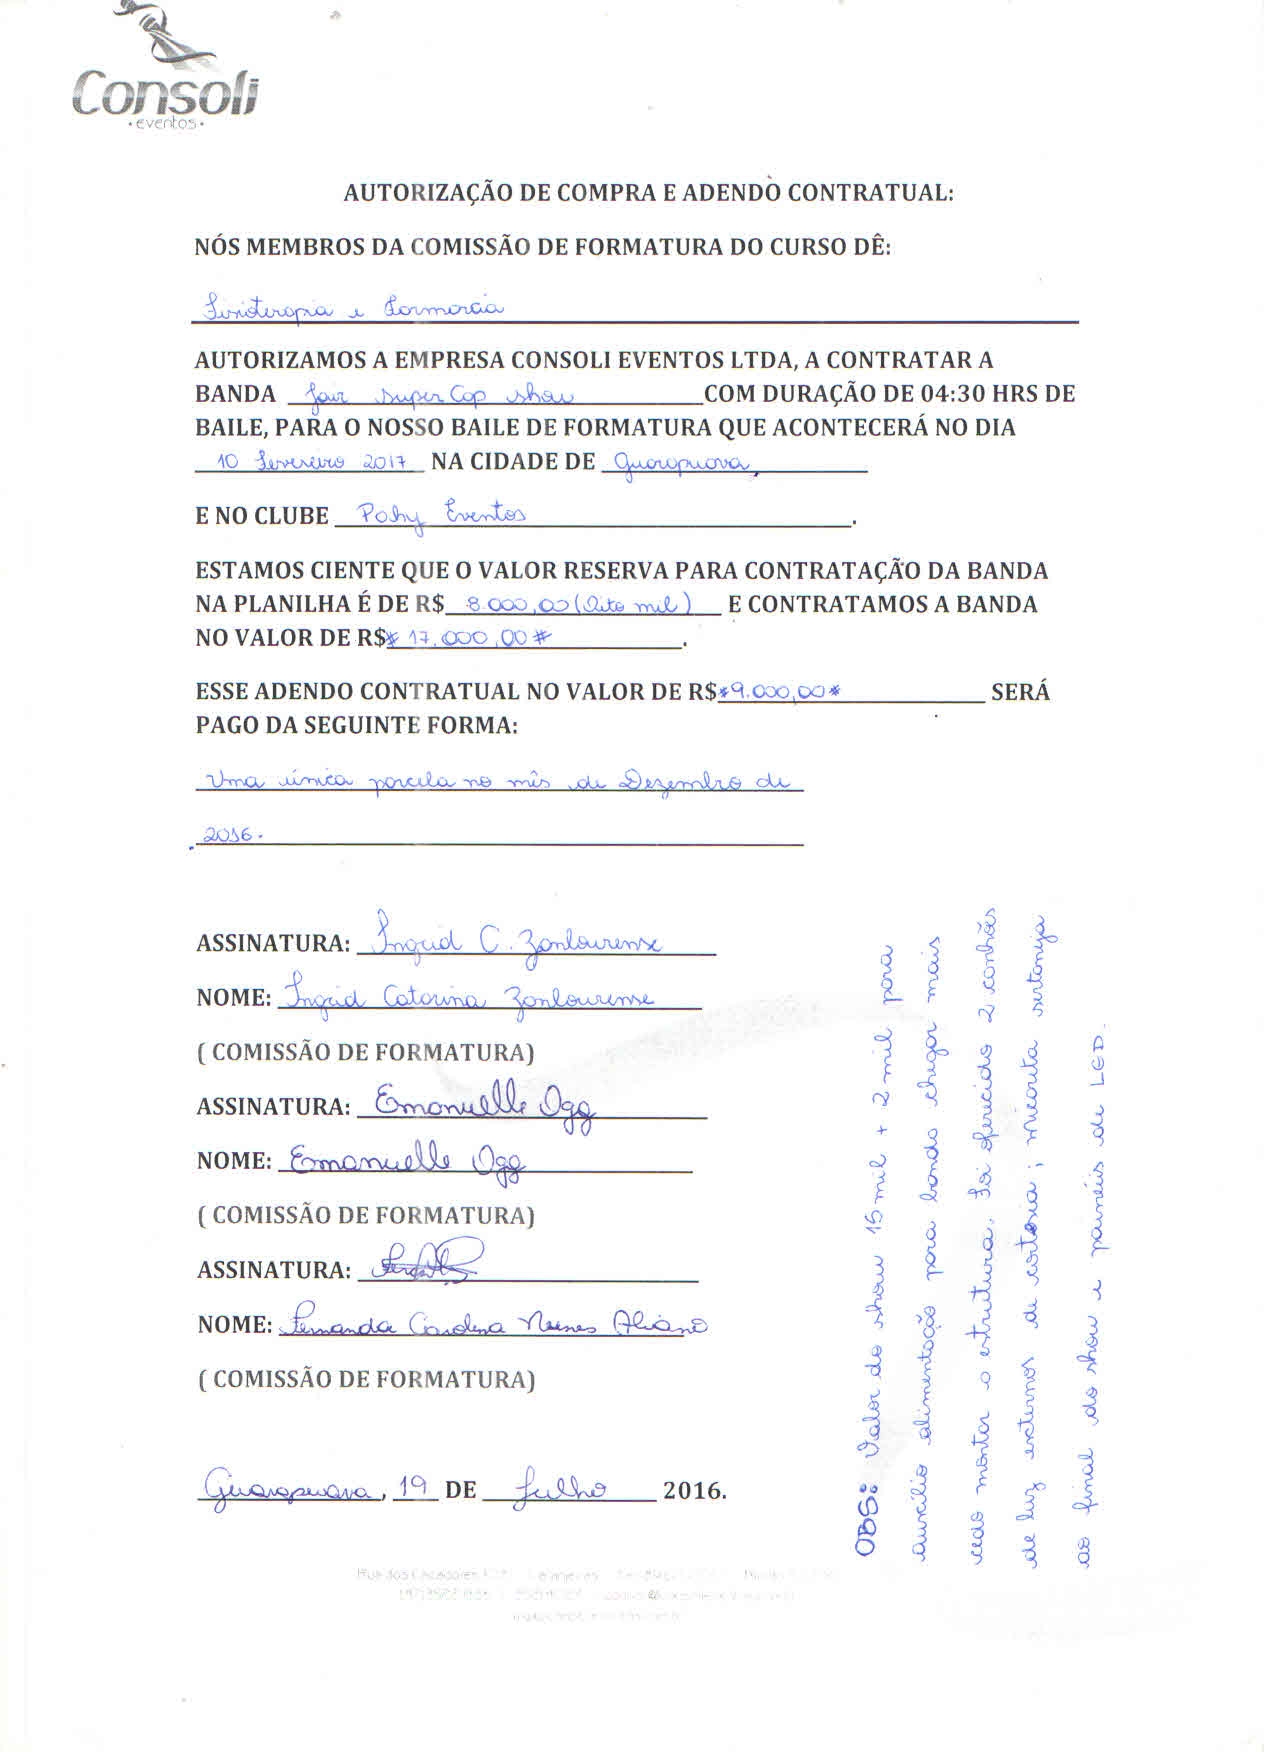 Consoli
• eventos •
AUTORIZAÇÃO DE COMPRA E ADENDO CONTRATUAL:
NÓS MEMBROS DA COMISSÃO DE FORMATURA DO CURSO DÊ:
Fisioterapia e Farmácia
AUTORIZAMOS A EMPRESA CONSOLI EVENTOS LTDA, A CONTRATAR A
BANDA Jair Super Cap Show COM DURAÇÃO DE 04:30 HRS DE
BAILE, PARA O NOSSO BAILE DE FORMATURA QUE ACONTECERÁ NO DIA
10 Fevereiro 2017 NA CIDADE DE Guarapuava
E NO CLUBE Pahy Eventos.
ESTAMOS CIENTE QUE O VALOR RESERVA PARA CONTRATAÇÃO DA BANDA
NA PLANILHA É DE R$ 8.000,00 (Oito mil) E CONTRATAMOS A BANDA
NO VALOR DE R$# 17.000,00 #.
ESSE ADENDO CONTRATUAL NO VALOR DE R$*9.000,00* SERÁ
PAGO DA SEGUINTE FORMA:
Uma única parcela no mês de Dezembro de
2016.
ASSINATURA: Ingrid C. Zanlourense
NOME: Ingrid Catarina Zanlourense
( COMISSÃO DE FORMATURA)
ASSINATURA: Emanuelle Ogg
NOME: Emanuelle Ogg
( COMISSÃO DE FORMATURA)
ASSINATURA:
NOME: Fernanda Carolina Nunes
( COMISSÃO DE FORMATURA)
Guarapuava, 19 DE Julho 2016.
OBS: Valor do show 15 mil + 2 mil para
auxílio alimentação para banda chegar mais
cedo montar a estrutura. Foi oferecido 2 canhões
de luz externos de cortesia; micareta sertaneja
ao final do show e painéis de LED.
Rua dos Caçadores